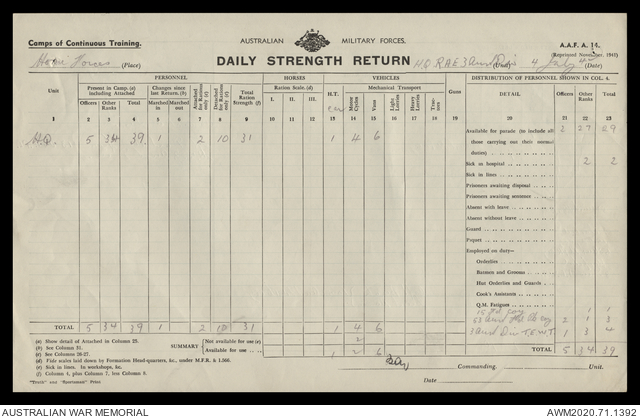 Camps of Continuous Training.
AUSTRALIAN MILITARY FORCES.
A.A.F. A. 14.
(Reprinted November, 1941)
Home Forces (Place)
DAILY STRENGTH RETURN
H.Q. RAE 3 Aust Div (Unit)
4 July 43 (Date)
Unit
PERSONNEL
HORSES
VEHICLES
Guns
DISTRIBUTION OF PERSONNEL SHOWN IN COL. 4.
Present in Camp, (a) including Attached
Changes since last Return. (b)
Attached for Rations only (c)
Detached for Rations only (e)
Total Ration Strength (f)
Ration Scale. (d)
H.T.
Mechanical Transport
DETAIL
Officers
Other Ranks
Total
Officers
Other Ranks
Total
Marched in
Marched out
I.
II.
III.
Motor Cycles
Vans
Light Lorries
Heavy Lorries
Tractors
1 2 3 4 5 6 7 8 9 10 11 12 13 14 15 16 17 18 19 20 21 22 23
H.Q. 5 34 39 1 2 10 31 1 4 6
Available for parade (to include all those carrying out their normal duties) 2 27 29
Sick in hospital 2 2
Sick in lines
Prisoners awaiting disposal
Prisoners awaiting sentence
Absent with leave
Absent without leave
Guard
Piquet
Employed on duty—
Orderlies
Batmen and Grooms
Hut Orderlies and Guards
Cook's Assistants
Q.M. Fatigues
15 Fd Coy 1 1
2 1 3
3 Aust Div 1 3 4
TOTAL 5 34 39 1 2 10 31 1 4 6
TOTAL 5 34 39
SUMMARY
Not available for use (e) 2
Available for use 1 2 6
(a) Show detail of Attached in Column 25.
(b) See Column 31.
(c) See Columns 26-27.
(d) Vide scales laid down by Formation Head-quarters, &c., under M.F.R. & I.560.
(e) Sick in lines. In workshops, &c.
(f) Column 4, plus Column 7, less Column 8.
"Truth" and "Sportsman" Print
Commanding. Unit.
Date
AUSTRALIAN WAR MEMORIAL
AWM2020.71.1392